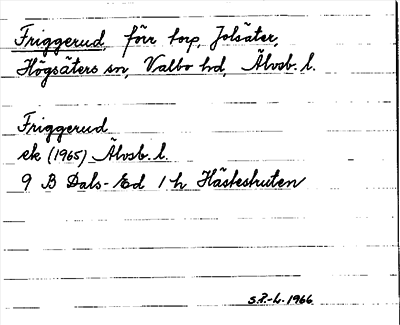 Friggerud, förr torp, Jolsäter,
Högsäters sn, Valbo hd, Älvsb. l.
Friggerud
ek (1965) Älvsb. l.
9 B Dals-Ed 1 h Hästeskuten
S.P.-L. 1966